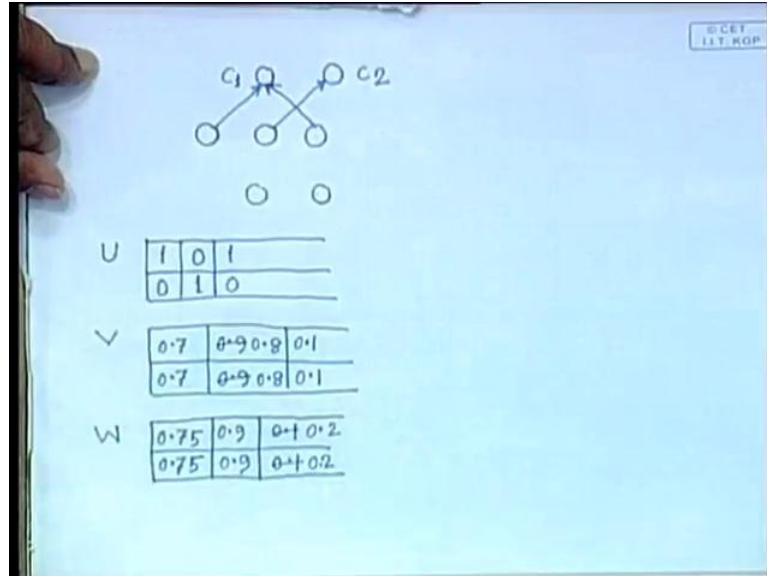 © CET
I.I.T. KGP
C1 C2
U 1 0 1
0 1 0
V 0.7 0.9 0.8 0.1
0.7 0.9 0.8 0.1
W 0.75 0.9 0.1 0.2
0.75 0.9 0.1 0.2